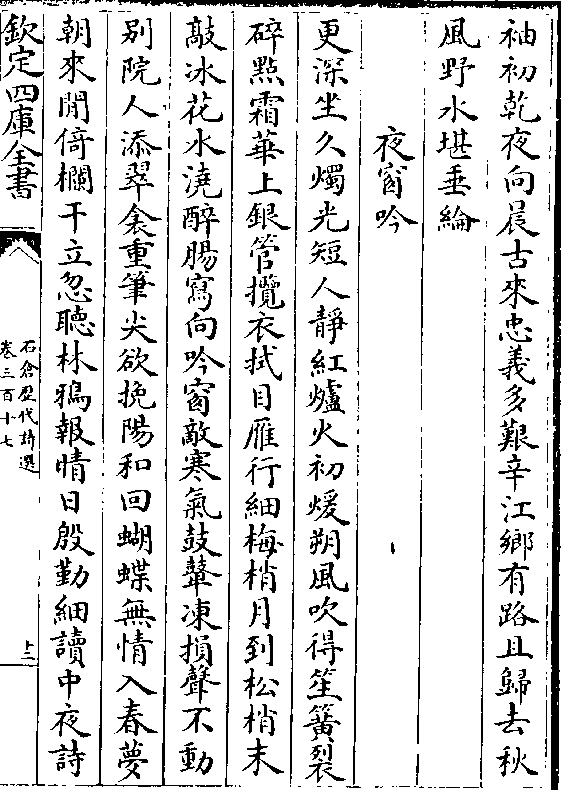 袖初乾夜向晨古來忠義多艱辛江鄉有路且歸去秋
風野水堪垂綸
夜窗吟
更深坐久燭光短人靜紅爐火初煖朔風吹得笙簧裂
碎點霜華上銀管攬衣拭目雁行細梅梢月到松梢末
敲冰花水澆醉腸寫向吟窗敵寒氣鼓鼙凍損聲不動
别院人添翠衾重筆尖欲挽陽和回蝴蝶無情入春夢
朝來閒倚欄干立忽聽林鴉報情日殷勤細讀中夜詩
欽定四庫全書
石倉歷代詩選
卷三百十七